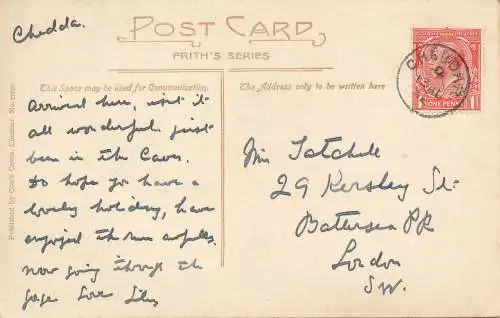 Chedda.
POST CARD
FRITH'S SERIES
This Space may be used for Communication.
The Address only to be written here
Arrived here, isn't it
all wonderful. just
been in the Caves.
Do hope you have a
lovely holiday, have
enjoyed the run awfully.
Now going through the
gorge Love Lily
Miss Tatchell
29 Kersley St.
Battersea PK
London
SW.
Published by Cox's Caves, Cheddar.
CHEDDAR
ONE PENNY